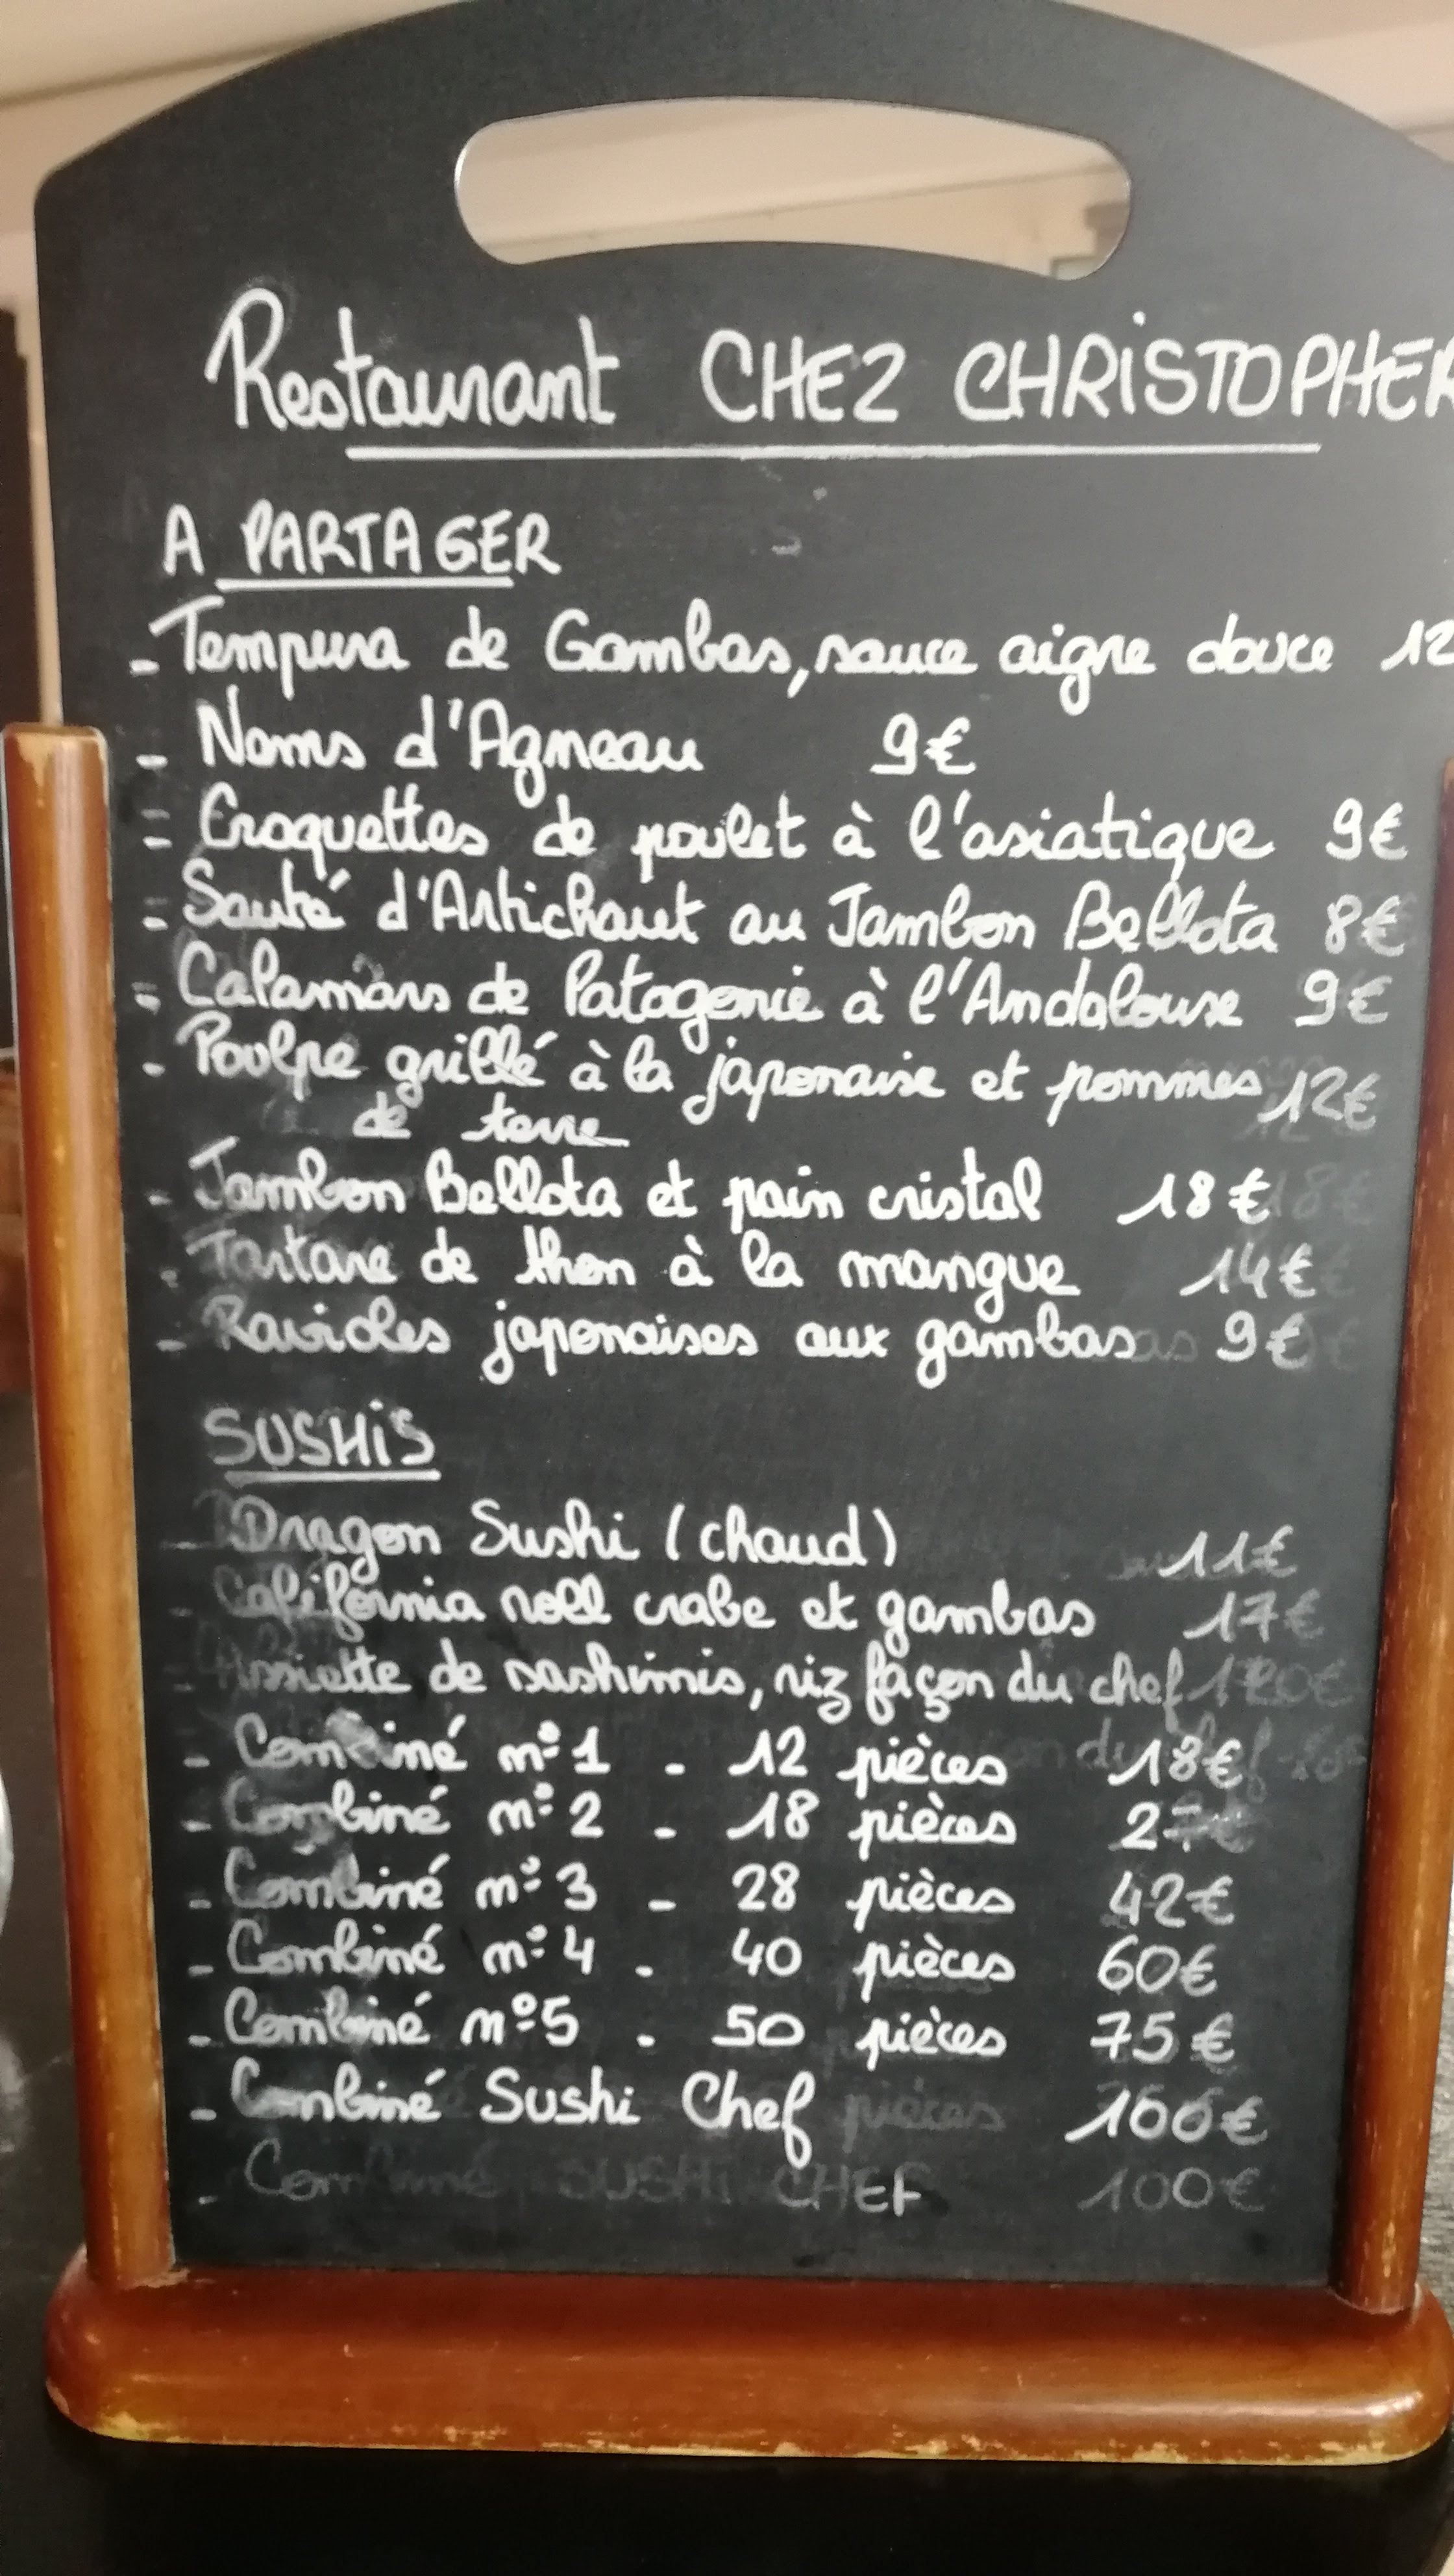 Restaurant CHEZ CHRISTOPHER
A PARTAGER
- Tempura de Gambas, sauce aigre douce 12
- Nems d'Agneau 9€
- Croquettes de poulet à l'asiatique 9€
- Sauté d'Artichaut au Jambon Bellota 8€
- Calamars de Patagonie à l'Andalouse 9€
- Poulpe grillé à la japonaise et pommes 12€
de terre
- Jambon Bellota et pain cristal 18€
- Tartare de thon à la mangue 14€
- Ravioles japonaises aux gambas 9€
SUSHIS
- Dragon Sushi (chaud) 11€
- California roll crabe et gambas 17€
- Assiette de sashimis, riz façon du chef
- Combiné n°1 - 12 pièces 18€
- Combiné n°2 - 18 pièces
- Combiné n°3 - 28 pièces 42€
- Combiné n°4 - 40 pièces 60€
- Combiné n°5 - 50 pièces 75€
- Combiné Sushi Chef pièces 100€
- Combiné SUSHI CHEF 100€